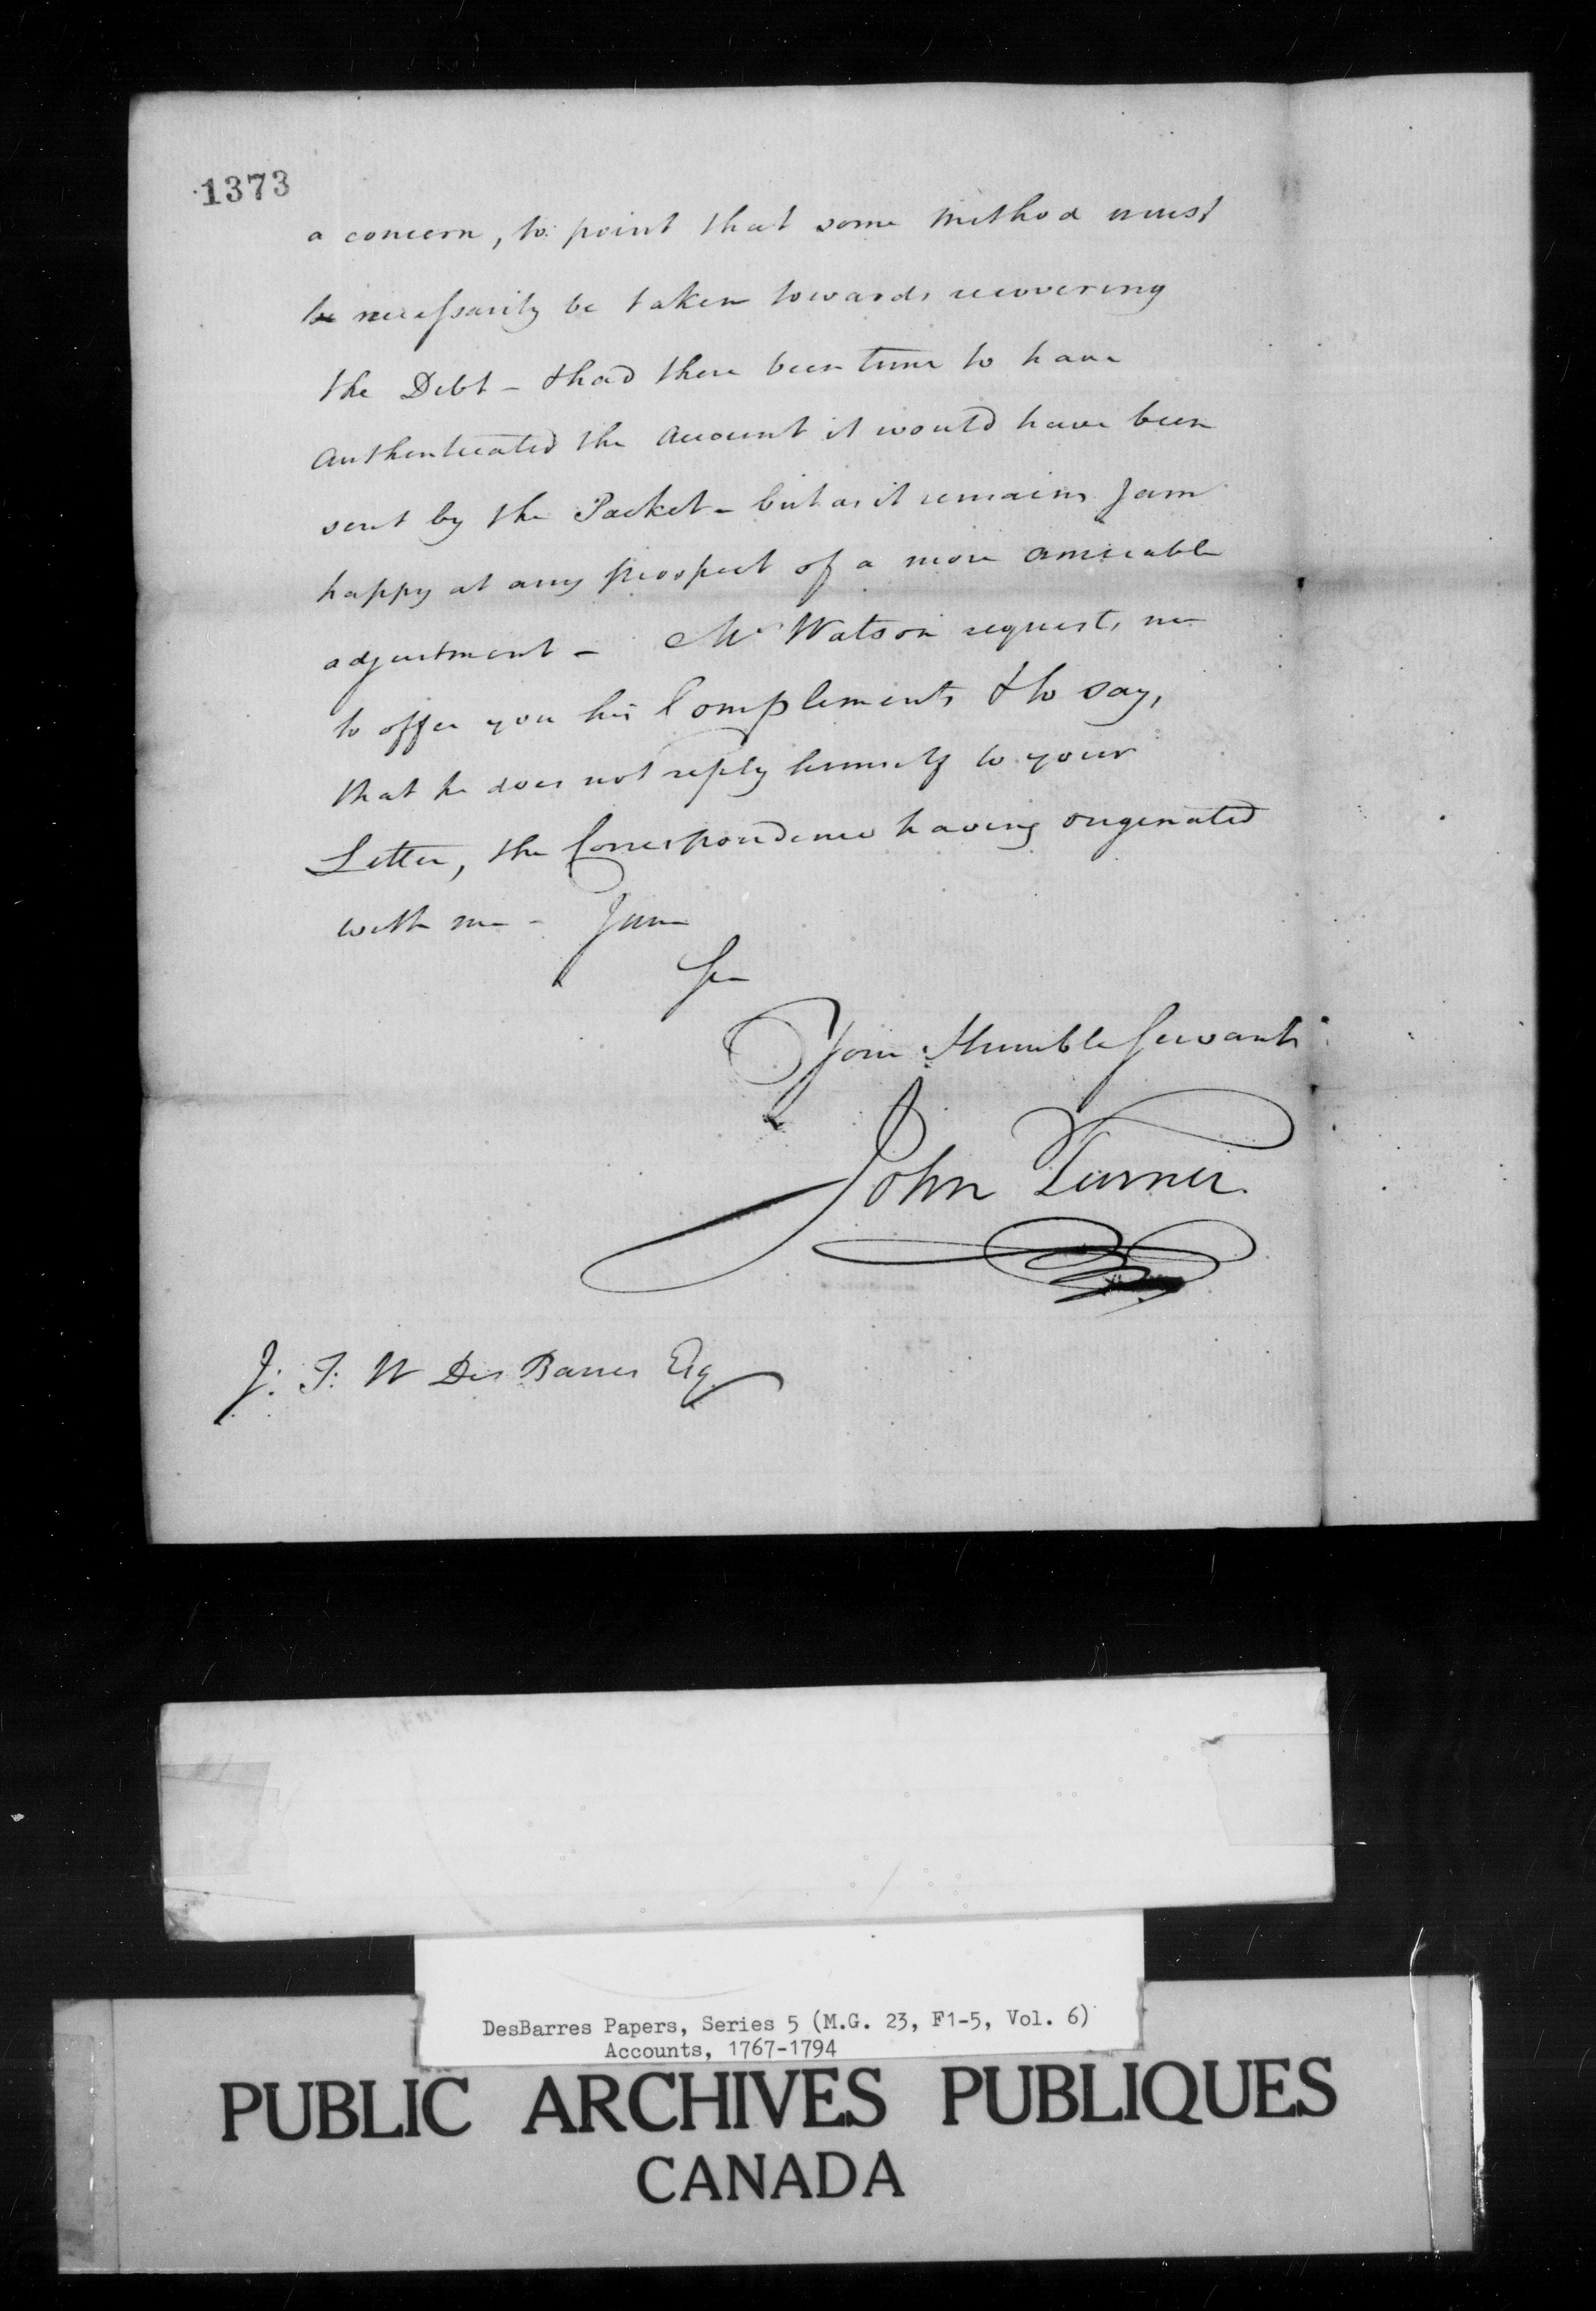 1373
a concern, to point that some method must
be necessarily be taken towards recovering
the Debt - & had there been time to have
Authenticated the Account it would have been
sent by the Packet - but as it remains I am
happy at any prospect of a more amicable
adjustment - Mr Watson requests me
to offer you his Complements & to say,
that he does not reply himself to your
Letter, the Correspondence having originated
with me - I am
Sir
Your Humble Servant
John Turner
J: F: W Des Barres Esq
DesBarres Papers, Series 5 (M.G. 23, F1-5, Vol. 6)
Accounts, 1767-1794
PUBLIC ARCHIVES PUBLIQUES
CANADA